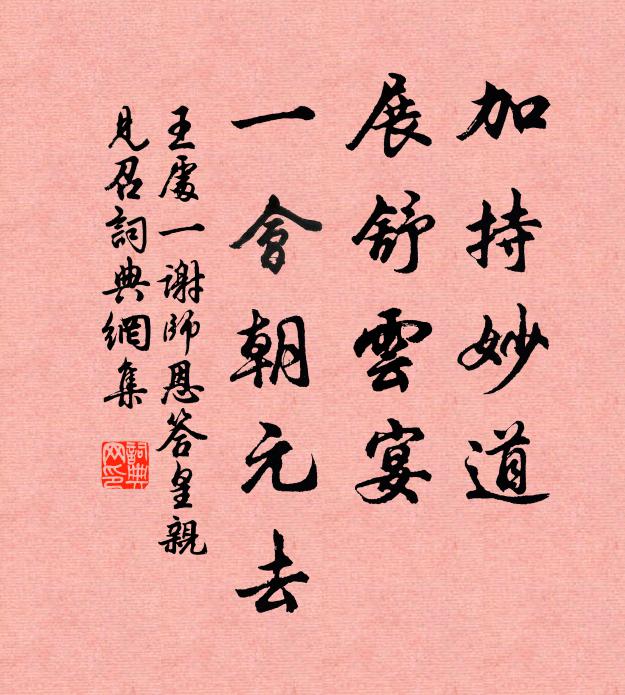 加持妙道
展舒雲宴
一會朝元去
王處一謝師恩答皇親
見召詞典網集
詞典網印